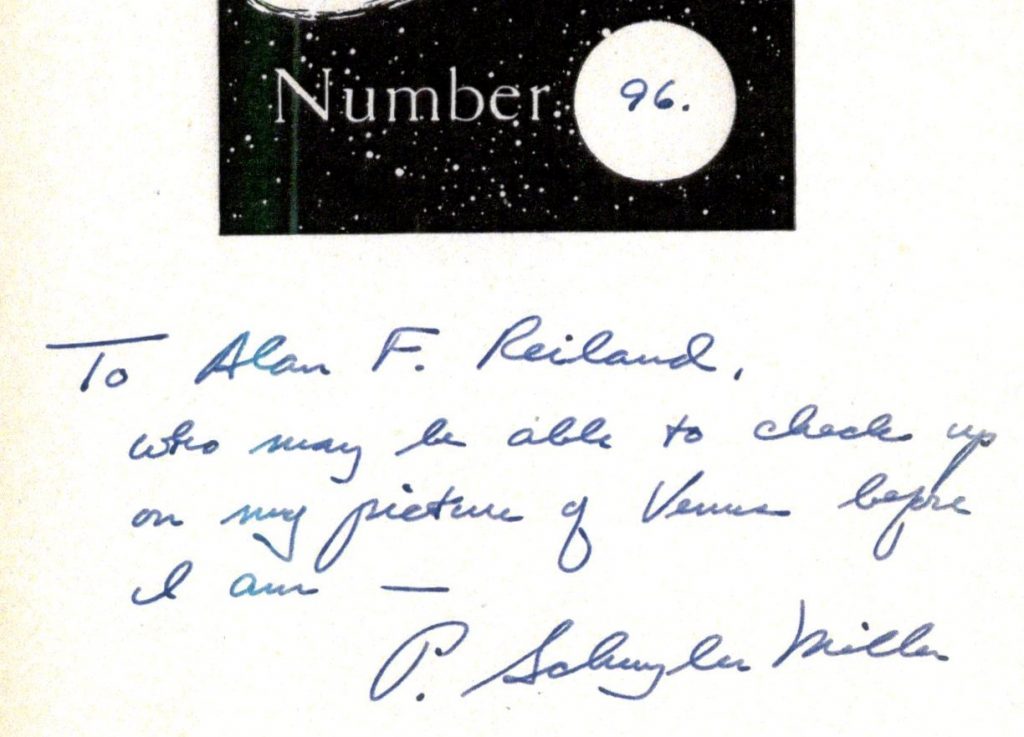 Number 96.
To Alan F. Reiland,
who may be able to check up
on my picture of Venus before
I am —
P. Schuyler Miller